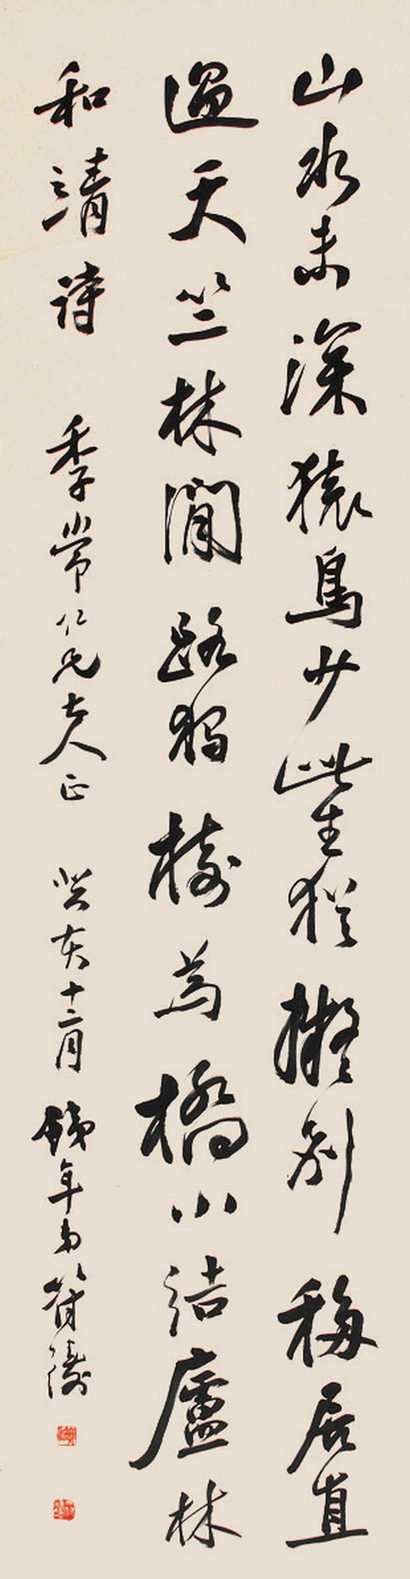 山水未深猿鳥少此生猶擬別移居直
過天竺林閒路獨樹為橋小結廬林
和靖詩 季常仁兄大人正 癸亥十二月 年弟